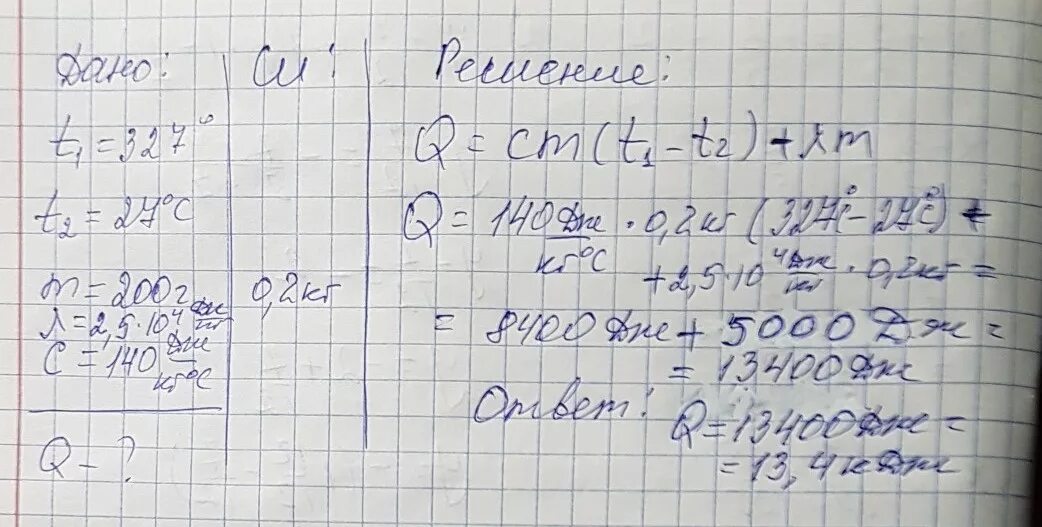 Дано:
t₁ = 327°
t₂ = 27°C
m = 200г
λ = 2,5·10⁴ Дж/кг
C = 140 Дж/кг°C
Q - ?
Си:
0,2кг
Решение:
Q = cm(t₁ - t₂) + λm
Q = 140 Дж/кг°C · 0,2кг (327°C - 27°C) +
+ 2,5·10⁴ Дж/кг · 0,2кг =
= 8400 Дж + 5000 Дж =
= 13400 Дж
Ответ: Q = 13400 Дж =
= 13,4 кДж